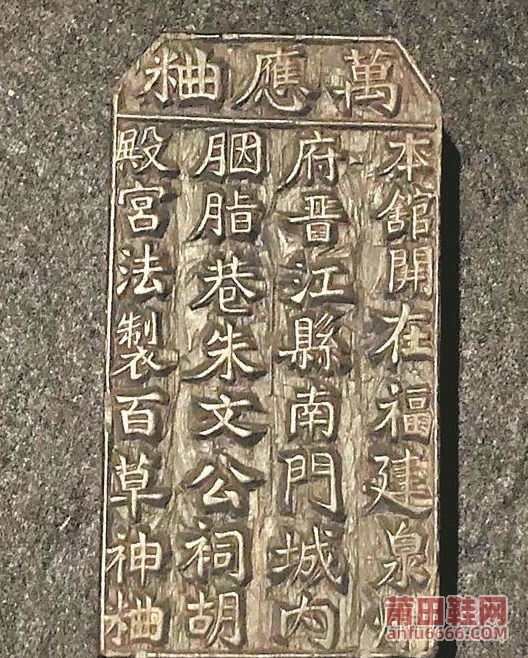 萬應粬
本館開在福建泉州
府晋江縣南門城内
胭脂巷朱文公祠胡
殿宮法製百草神粬
莆田鞋网
anfu6666.com